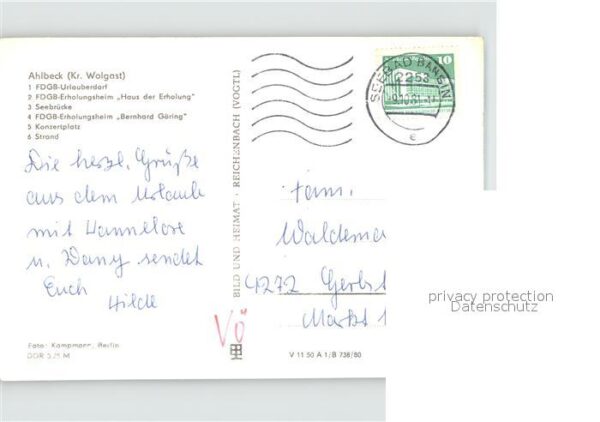 Ahlbeck (Kr. Wolgast)
1 FDGB-Urlauberdorf
2 FDGB-Erholungsheim „Haus der Erholung"
3 Seebrücke
4 FDGB-Erholungsheim „Bernhard Göring"
5 Konzertplatz
6 Strand
Die herzl. Grüße
aus dem Urlaub
mit Hannelore
u. Dany sendet
Euch
Hilde
Foto: Kampmann, Berlin
DDR
BILD UND HEIMAT · REICHENBACH (VOGTL)
SEEBAD BANSIN
2253
e
10
Fam.
Waldema
4272 Gerbst
Markt 1
Vö
V 11 50 A 1/B 738/80
privacy protection
Datenschutz